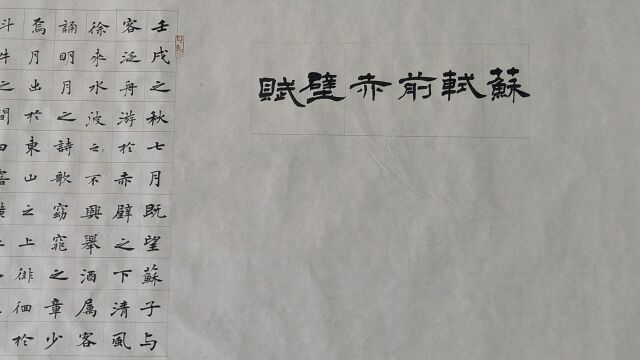 蘇軾前赤壁賦
壬戌之秋七月既望蘇子与
客泛舟游於赤壁之下清風
徐来水波之不興舉酒属客
誦明月之詩歌窈窕之章少
焉月出於東山之上徘徊於
斗牛之間白露